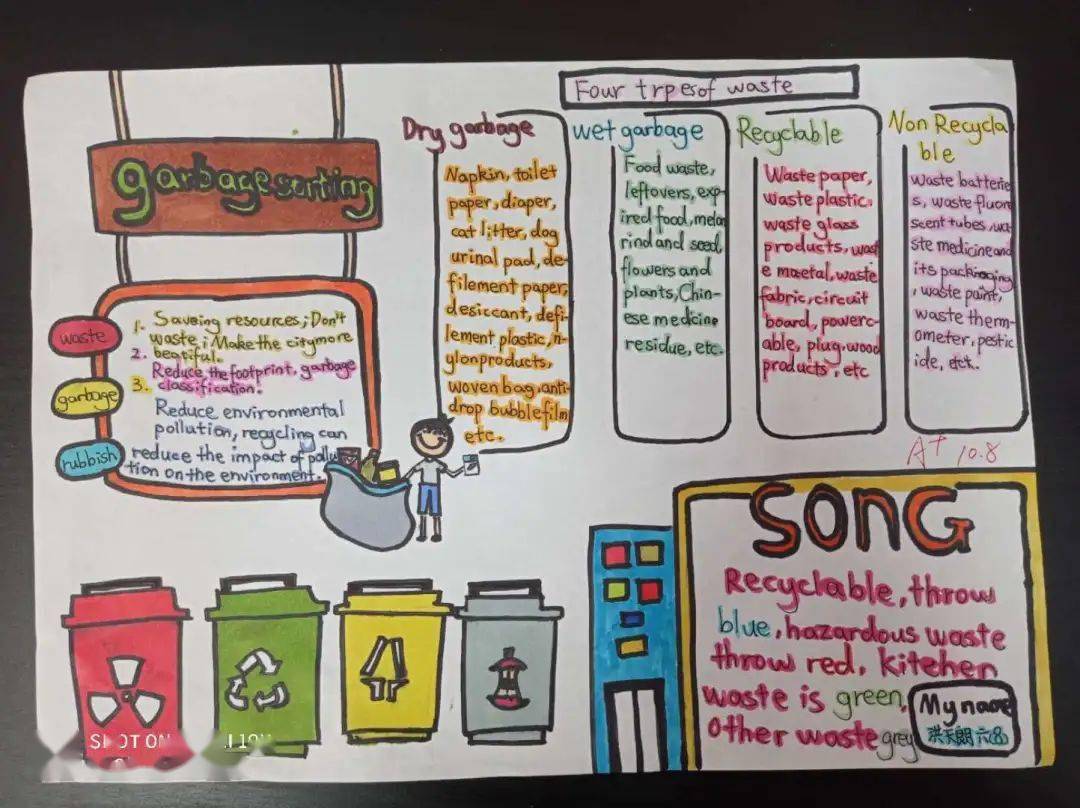 garbage sorting
waste
garbage
rubbish
1. Saveing resources; Don't
waste; Make the city more
beatiful.
2. Reduce the footprint, garbage
3. classification!
Reduce environmental
pollution, recycling can
reduce the impact of pollu
tion on the environment.
Four trpes of waste
Dry garbage
Napkin, toilet
paper, diaper,
cat litter, dog
urinal pad, de-
filement paper,
desiccant, defi-
lement plastic, n-
ylon products,
woven bag, anti-
drop bubble film
etc.
wet garbage
Food waste,
leftovers, exp-
ired food, melon
rind and seed,
flowers and
plants, Chin-
ese medicine
residue, etc.
Recyclable
Waste paper,
waste plastic,
waste glass
products, wast
e maetal, waste
fabric, circuit
board, powerc-
able, plug, wood
products, etc
Non Recycla
ble
waste batterie
s, waste fluore
scent tubes, wa
ste medicine and
its packaging
, waste paint,
waste therm-
ometer, pestic
ide, etct.
A+ 10.8
SONG
Recyclable, throw
blue, hazardous waste
throw red, kitehen
waste is green,
other waste grey
My name
洪天朗 六8
SHOT ON